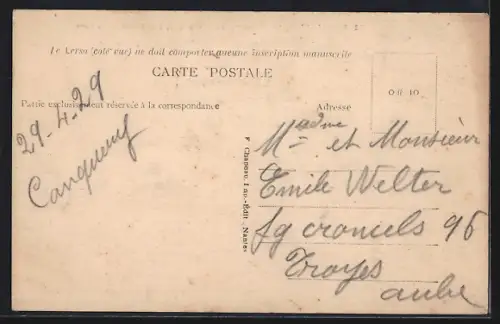 Le Verso (coté vue) ne doit comporter aucune inscription manuscrite
CARTE POSTALE
Partie exclusivement réservée à la correspondance
Adresse
29-4-29
F. Chapeau, Imp.-Edit. Nantes
Madme et Monsieur
Emile Welter
fg croncels 96
Troyes
aube